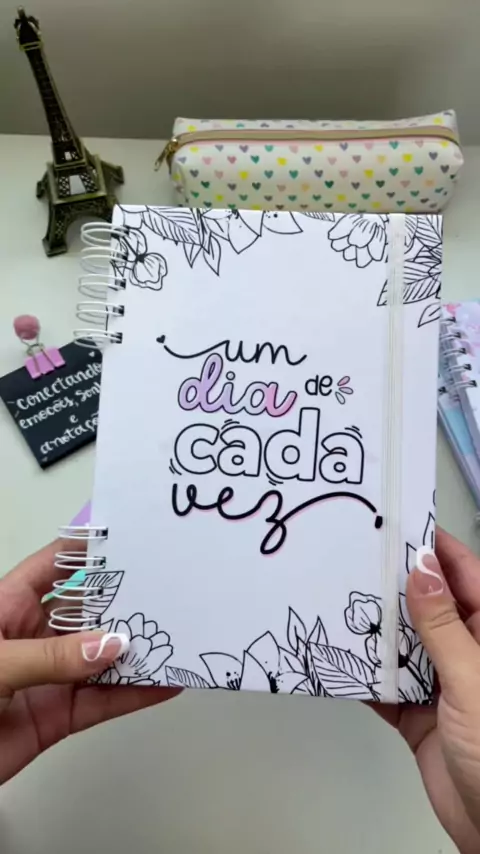 um
dia de
cada
vez
conectando
emoções, son
e
anotaçõ